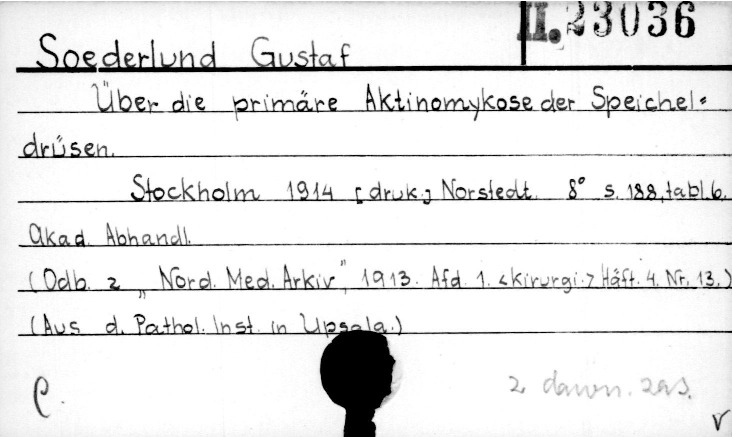 II. 23036
Soederlund Gustaf
Über die primäre Aktinomykose der Speichel=
drüsen.
Stockholm 1914 [druk:] Norstedt 8° s. 188, tabl. 6.
Akad. Abhandl.
(Odb. z „Nord. Med. Arkiv", 1913. Afd. 1. <Kirurgi.> Häft. 4. Nr. 13.)
(Aus d. Pathol. Inst. in Upsala.)
z dawn. zas.
v